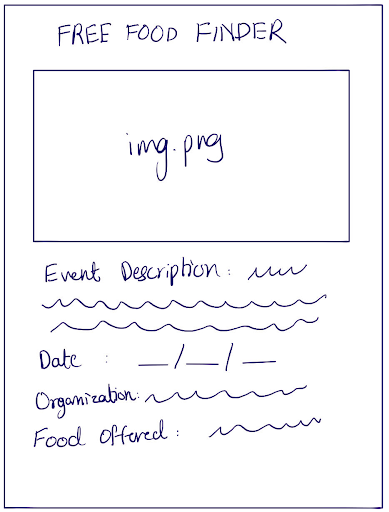 FREE FOOD FINDER
img.png
Event Description:
Date : __/__/__
Organization:
Food Offered :